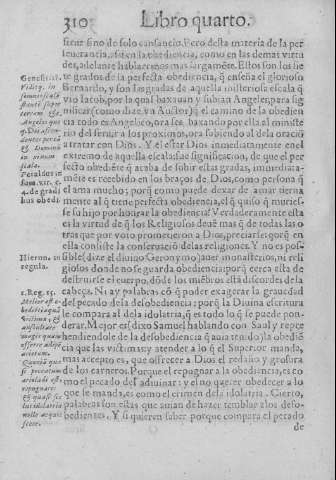 310 Libro quarto.
sirue sino de solo cansancio. Pero desta materia de la per
seuerancia, assi en la obediencia, como en las demas virtu
des, adelante hablaremos mas largamẽte. Estos son los sie
te grados de la perfecta obediencia, q̃ enseña el glorioso
Bernardo, y son los grados de aquella misteriosa escala q̃
vio Iacob, por la qual baxauan y subian Angeles, para sig
nificar (como dize va Autor) q̃ el camino de la obedien
cia todo es Angelico, ora sea baxando por ella al ministe
rio del seruir a los proximos, ora subiendo al dela oraciõ
a tratar con Dios. Y el estar Dios inmediatamente en el
extremo de aquella escala, fue significacion, de que el per
fecto obediẽte q̃ acaba de subir estas gradas, inmediata-
mente es recebido en los braços de Dios, como persona q̃
el ama mucho; porq̃ como puede dexar de amar tierna
mente al q̃ tiene perfecta obediencia, el q̃ quiso q̃ muries-
se su hijo por honrar la obediencia? Verdaderamente esta
es la virtud de q̃ los Religiosos deuẽ mas q̃ de todas las o
tras que por voto prometieron a Dios, preciarse, porq̃ en
ella consiste la conseruaciõ de las religiones. Y no es pos-
sible (dize el diuino Geronymo) auer monasterios, ni reli
giosos donde no se guarda obediencia: porq̃ cerca esta de
destruirse el cuerpo, dõde los miẽbros estã discordes de la
cabeça. Ni ay palabras cõ q̃ poder exagerar la grauedad
del pecado de la desobediencia: porq̃ la Diuina escritura
le compara al dela idolatria, q̃ es todo lo q̃ se puede pon-
derar. Mejor es (dixo Samuel hablando con Saul y repre
hendiendole de la desobediencia q̃ auia tenido) la obediẽ
cia que las victimas: y atender a lo q̃ el Superior manda,
mas accepto es, que offrecer a Dios el redaño y grossura
de los carneros. Porque el repugnar a la obediencia, es co
mo el pecado del adiuinar: y el no querer obedecer a lo
que le manda, es como el crimen dela idolatria. Cierto,
palabras son estas que auian de hazer temblar a los deso-
bedientes. Y si quieren saber porque compara el pecado
de
Hieron. in
regula.
1. Reg. 15.